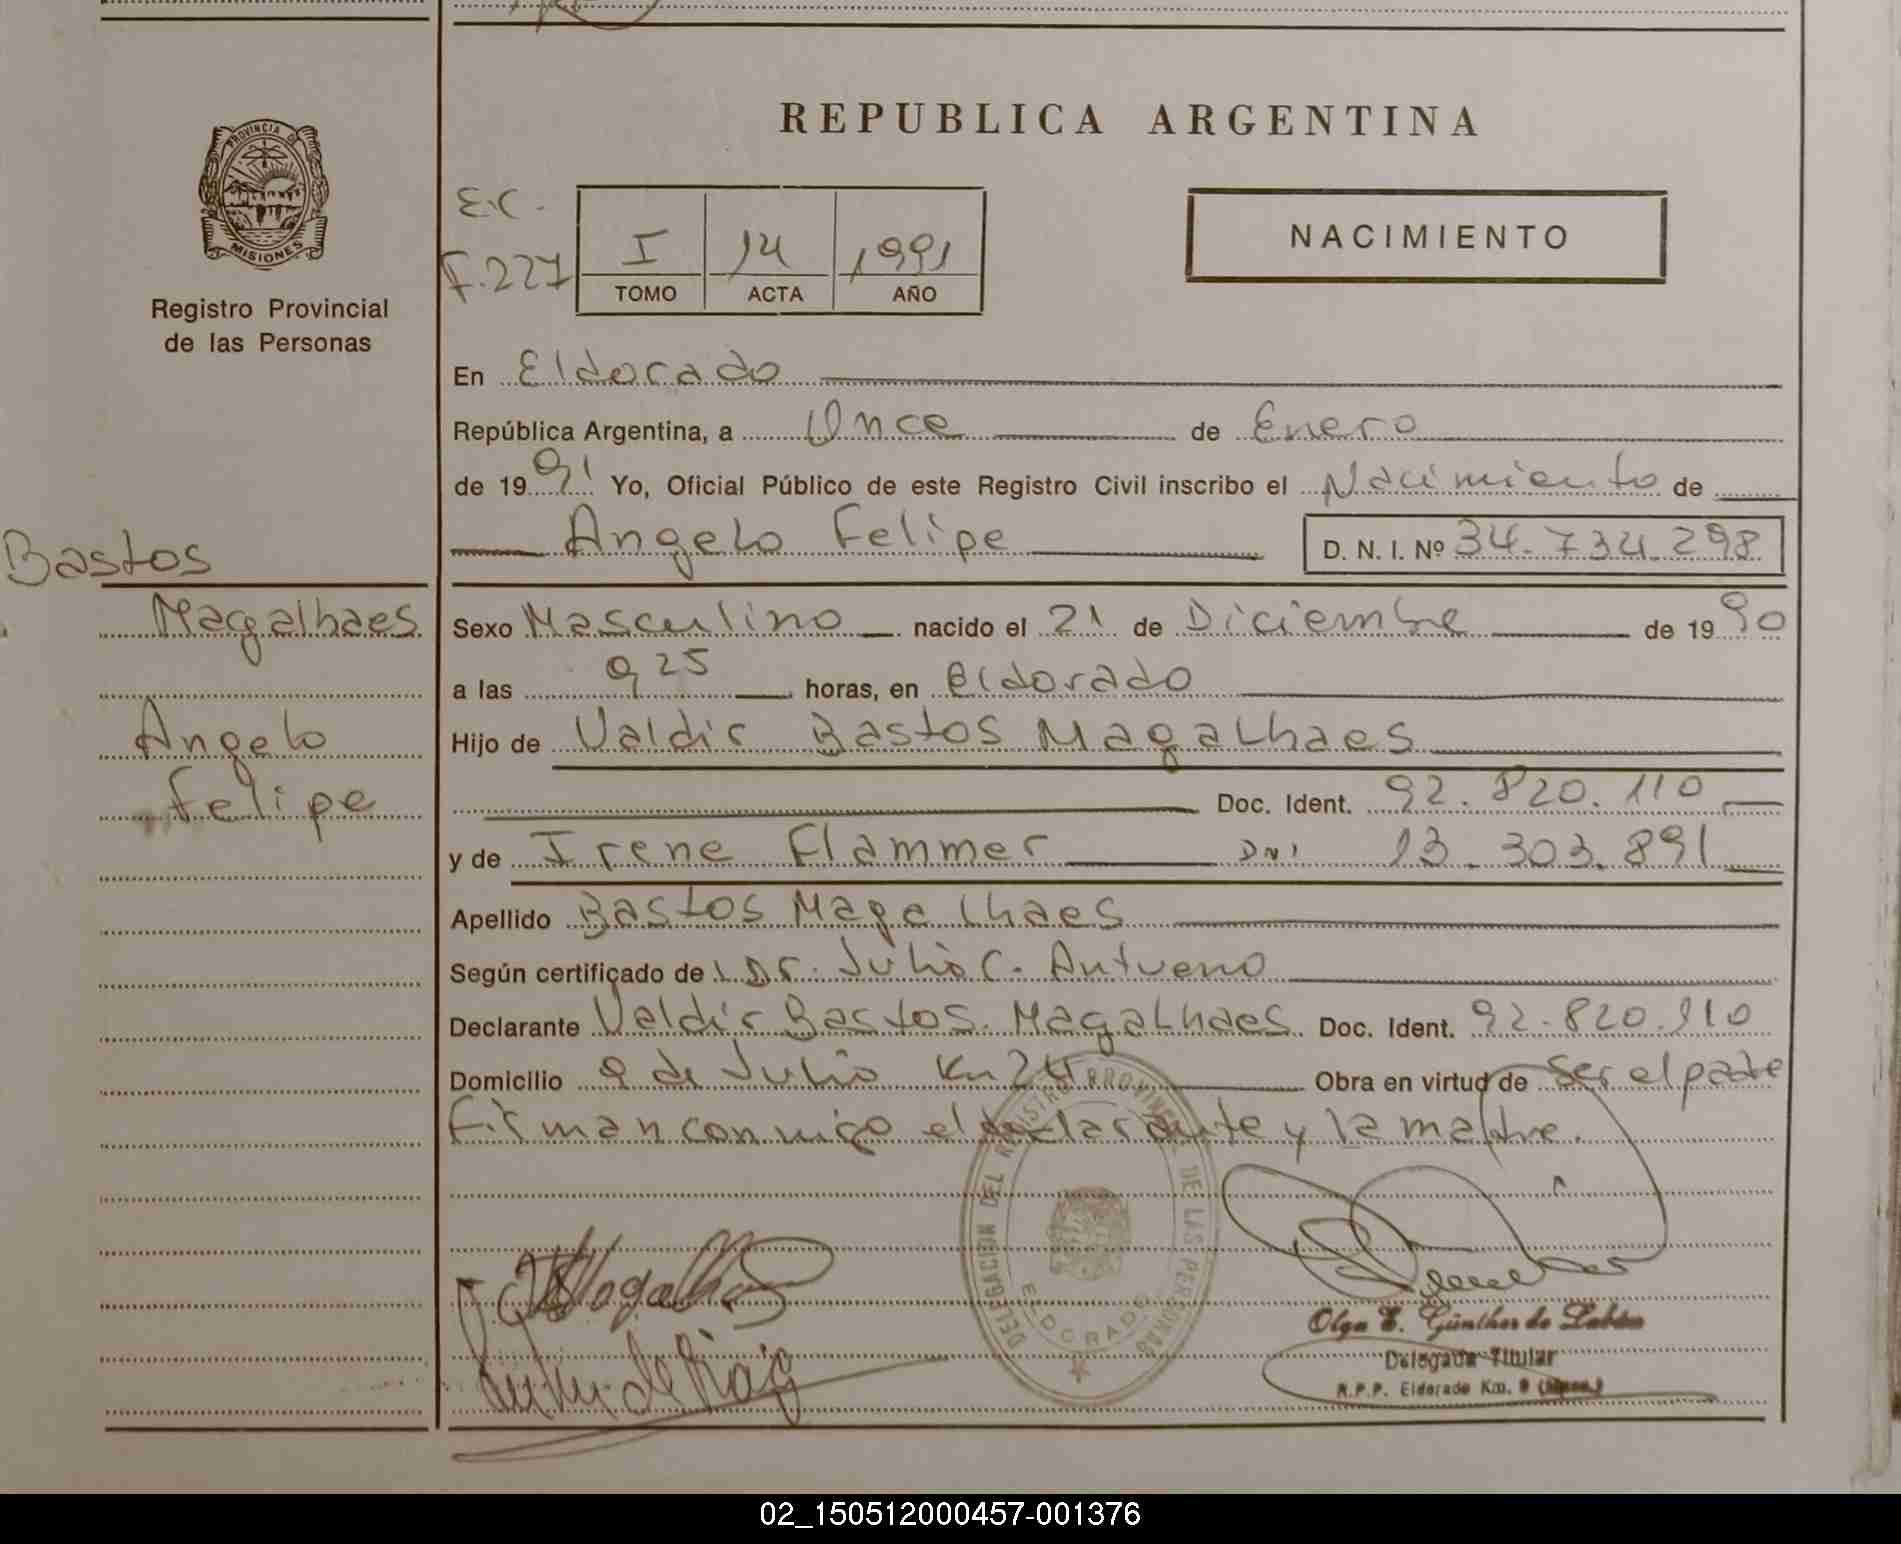 PROVINCIA DE
MISIONES
Registro Provincial
de las Personas
Bastos
Magalhaes
Angelo
Felipe
REPUBLICA ARGENTINA
E.C.
F.227
I 14 1991
TOMO ACTA AÑO
NACIMIENTO
En Eldorado
República Argentina, a Once de Enero
de 1991 Yo, Oficial Público de este Registro Civil inscribo el Nacimiento de
Angelo Felipe D. N. I. Nº 34.734.298
Sexo Masculino nacido el 21 de Diciembre de 1990
a las 9 25 horas, en Eldorado
Hijo de Valdir Bastos Magalhaes
Doc. Ident. 92.820.110
y de Irene Flammer DNI 13.303.891
Apellido Bastos Magalhaes
Según certificado de Dr. Julio C. Antueno
Declarante Valdir Bastos Magalhaes Doc. Ident. 92.820.110
Domicilio 9 de Julio Km 24 Obra en virtud de Ser el padre
Firman conmigo el declarante y la madre.
DELEGACION DEL REGISTRO PROVINCIAL DE LAS PERSONAS
ELDORADO
Olga E. Günther de
Delegada Titular
R.P.P. Eldorado Km. 9
02_150512000457-001376